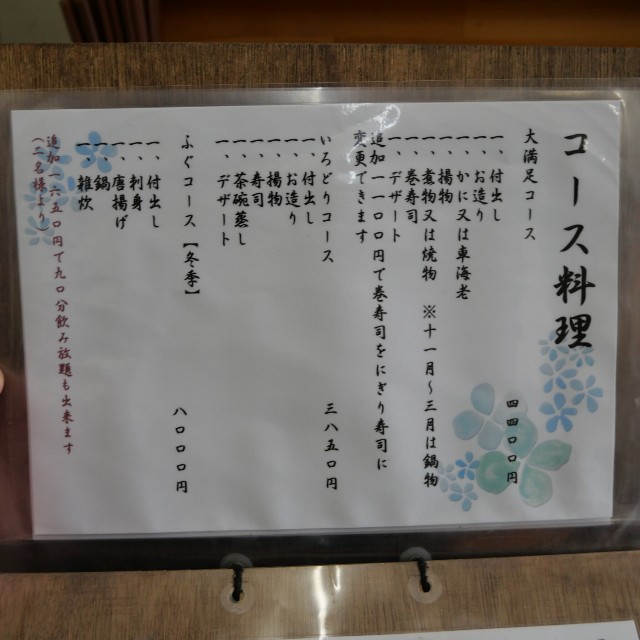 コース料理
大満足コース 四四〇〇円
一、付出し
一、お造り
一、かに又は車海老
一、揚物
一、煮物又は焼物 ※十一月～三月は鍋物
一、巻寿司
一、デザート
追加一一〇〇円で巻寿司をにぎり寿司に
変更できます
いろどりコース 三八五〇円
一、付出し
一、お造り
一、揚物
一、寿司
一、茶碗蒸し
一、デザート
ふぐコース【冬季】 八〇〇〇円
一、付出し
一、刺身
一、唐揚げ
一、鍋
一、雑炊
追加一六五〇円で九〇分飲み放題も出来ます
(二名様より)